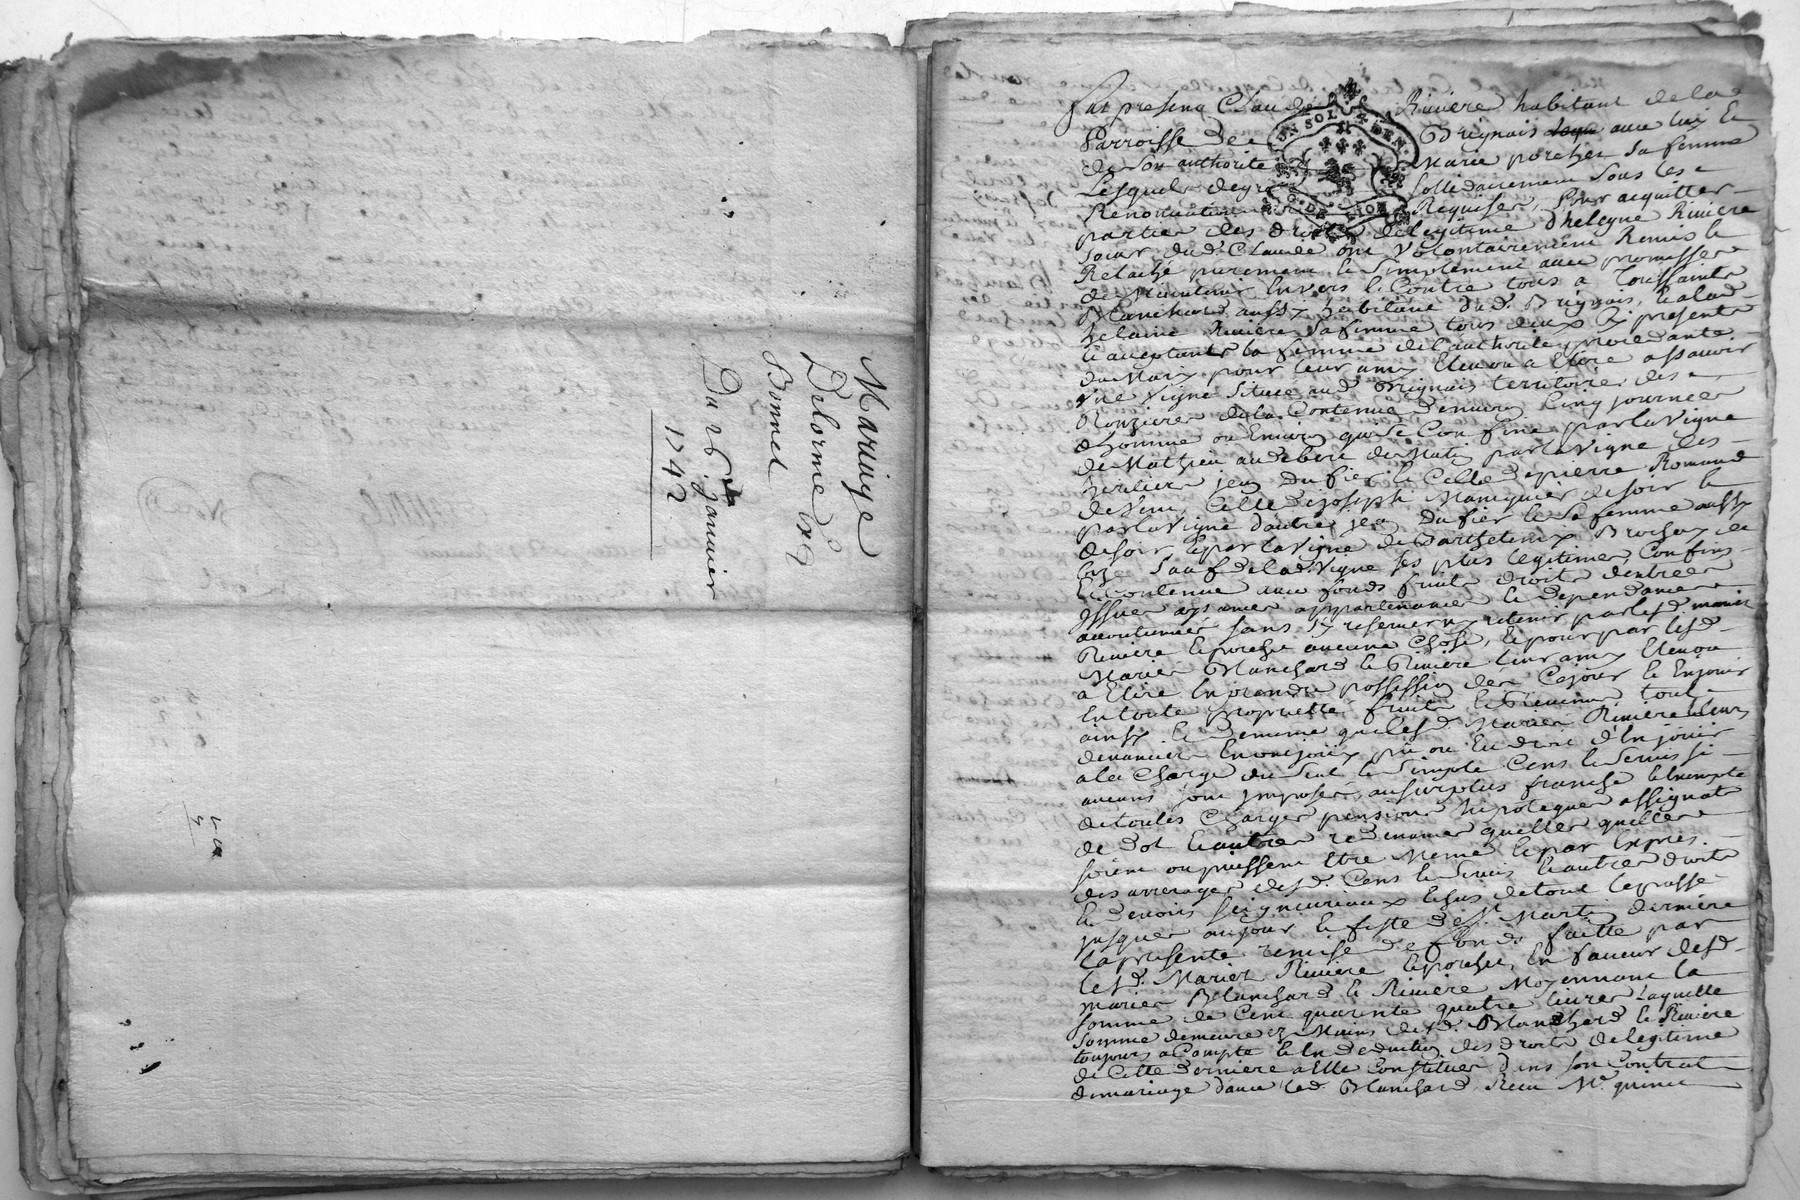 Mariage
Delorme et
Bonnel
Du 26 Janvier
1742
UN SOL 4 DEN.
G. DE LION
Fut presenq Claude Riviere habitant de la
Parroisse de Brignais avec luy Et
de son authorite Marie porcher sa femme
Lesquels de gre sollidairement sous les
Renonciations Requises, Pour acquitter
partie des droits de legitime d'heleyne Riviere
soeur dud. Claude ont volontairement Remis Et
Relaché purement Et simplement avec promesse
de maintenir Envers Et Contre tous a Toussaints
Blanchard aussy habitant dud. Brignais, Et a lad.
helaine Riviere sa femme tous deux Icy presents
Et acceptants la femme de l'authorité procedante
du Mary pour leur amy Eleu ou a Elire assavoir
vne vigne Située aud. Brignais territoire des
Ronzieres de la Contenue d'environ Cinq journées
d'homme ou Environ qui se Confine par la vigne
de Mathieu audebert de Matin par la vigne des
heritiers jean Dufier Et Celle de pierre Romand
de vent, Celle de joseph Maniquier de soir Et
par la vigne d'autre jean Dufier Et sa femme aussy
de soir Et par la vigne de Barthelemy Brochay de
bize Sauf de lad. vigne ses plus legitimes Confins
Et Contenue avec fonds fruits droits d'entrées
Issues aysances appartenances Et dependances
accoutumées sans s'y reserver ny retenir par lesd. mariés
Riviere Et porcher aucune Chose, Et pour par lesd.
Mariés Blanchard Et Riviere leur amy Eleu ou
a Elire En prendre possession des Cejour Et Enjouir
En toute proprieté fruits Et Revenus tout
ainsy Et de meme que lesd. Mariés Riviere Et leurs
devanciers En ont jouy pû ou Eu droit d'En jouir
a la Charge du seul Et Simple Cens Et Servis si
aucuns sont Imposés, au surplus franche Et Exempte
de toutes Charges pensions hipoteques assignats
de dot Et autres redevances quelles quelles
soient ou puissent Etre Meme Et par Exprès.
des arrerages desd. Cens Et Servis Et autres droits
Et devoirs seigneuriaux Echus de tout le passé
jusques au jour Et feste de St. Martin derniere
La presente remise de fonds faitte par
lesd. Mariés Riviere Et porcher, En faveur desd.
mariés Blanchard Et Riviere Moyennant la
somme de Cent quarente quatre livres Laquelle
Somme demeure Ez Mains desd. Blanchard Et Riviere
toujours a Compte Et En deduction des droits de legitime
de Cette derniere a Elle Constitués dans son Contrat
de mariage d'avec led. Blanchard Receu Me. quinet